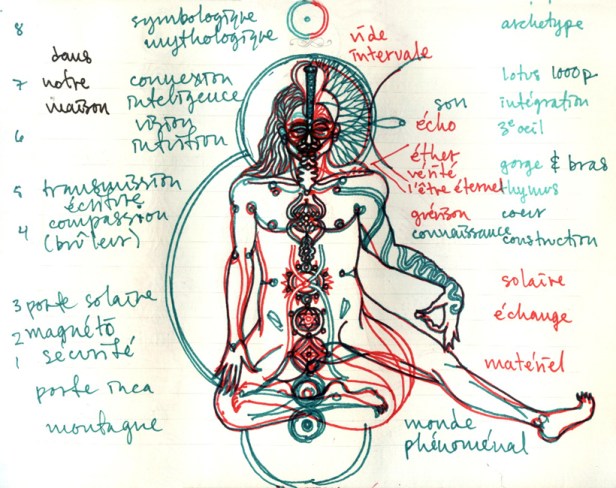 8
symbologique
mythologique
dans
7 notre
maison
connexion
intelligence
6
vision
intuition
5 transmission
écriture
4 compassion
(brûleur)
3 porte solaire
2 magnéto
1 sécurité
porte inca
montagne
vide
intervale
son
écho
éther
vérité
l'être éternel
guérison
connaissance
monde
phénoménal
archetype
lotus 1000p
intégration
3e oeil
gorge & bras
thymus
coeur
construction
solaire
échange
matériel